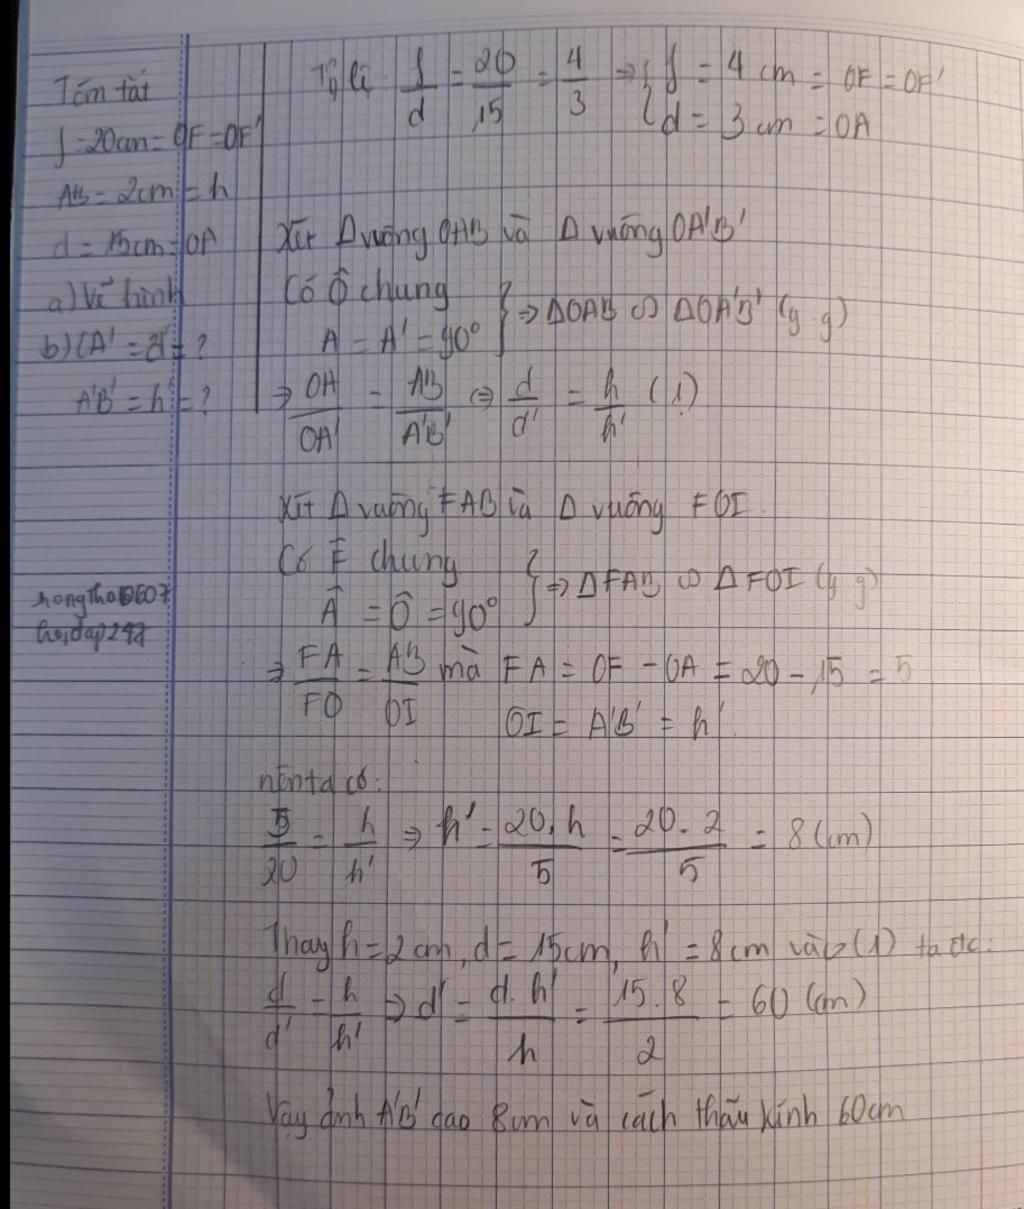 Tóm tắt
f = 20cm = OF = OF'
AB = 2cm = h
d = 15cm = OA
a) Vẽ hình
b) OA' = d' = ?
A'B' = h' = ?
hongtho0607
hoidap247
Tỷ lệ f/d = 20/15 = 4/3 => { f = 4 cm = OF = OF'
d = 3 cm = OA
Xét Δ vuông OAB và Δ vuông OA'B'
Có Ô chung
A = A' = 90° } => ΔOAB ∽ ΔOA'B' (g.g)
=> OA/OA' = AB/A'B' <=> d/d' = h/h' (1)
Xét Δ vuông FAB và Δ vuông FOI
Có F̂ chung
Â = Ô = 90° } => ΔFAB ∽ ΔFOI (g.g)
=> FA/FO = AB/OI mà FA = OF - OA = 20 - 15 = 5
OI = A'B' = h'
nên ta có:
5/20 = h/h' => h' = 20.h/5 = 20.2/5 = 8 (cm)
Thay h = 2cm, d = 15cm, h' = 8cm vào (1) ta đc:
d/d' = h/h' => d' = d.h'/h = 15.8/2 = 60 (cm)
Vậy ảnh A'B' cao 8cm và cách thấu kính 60cm